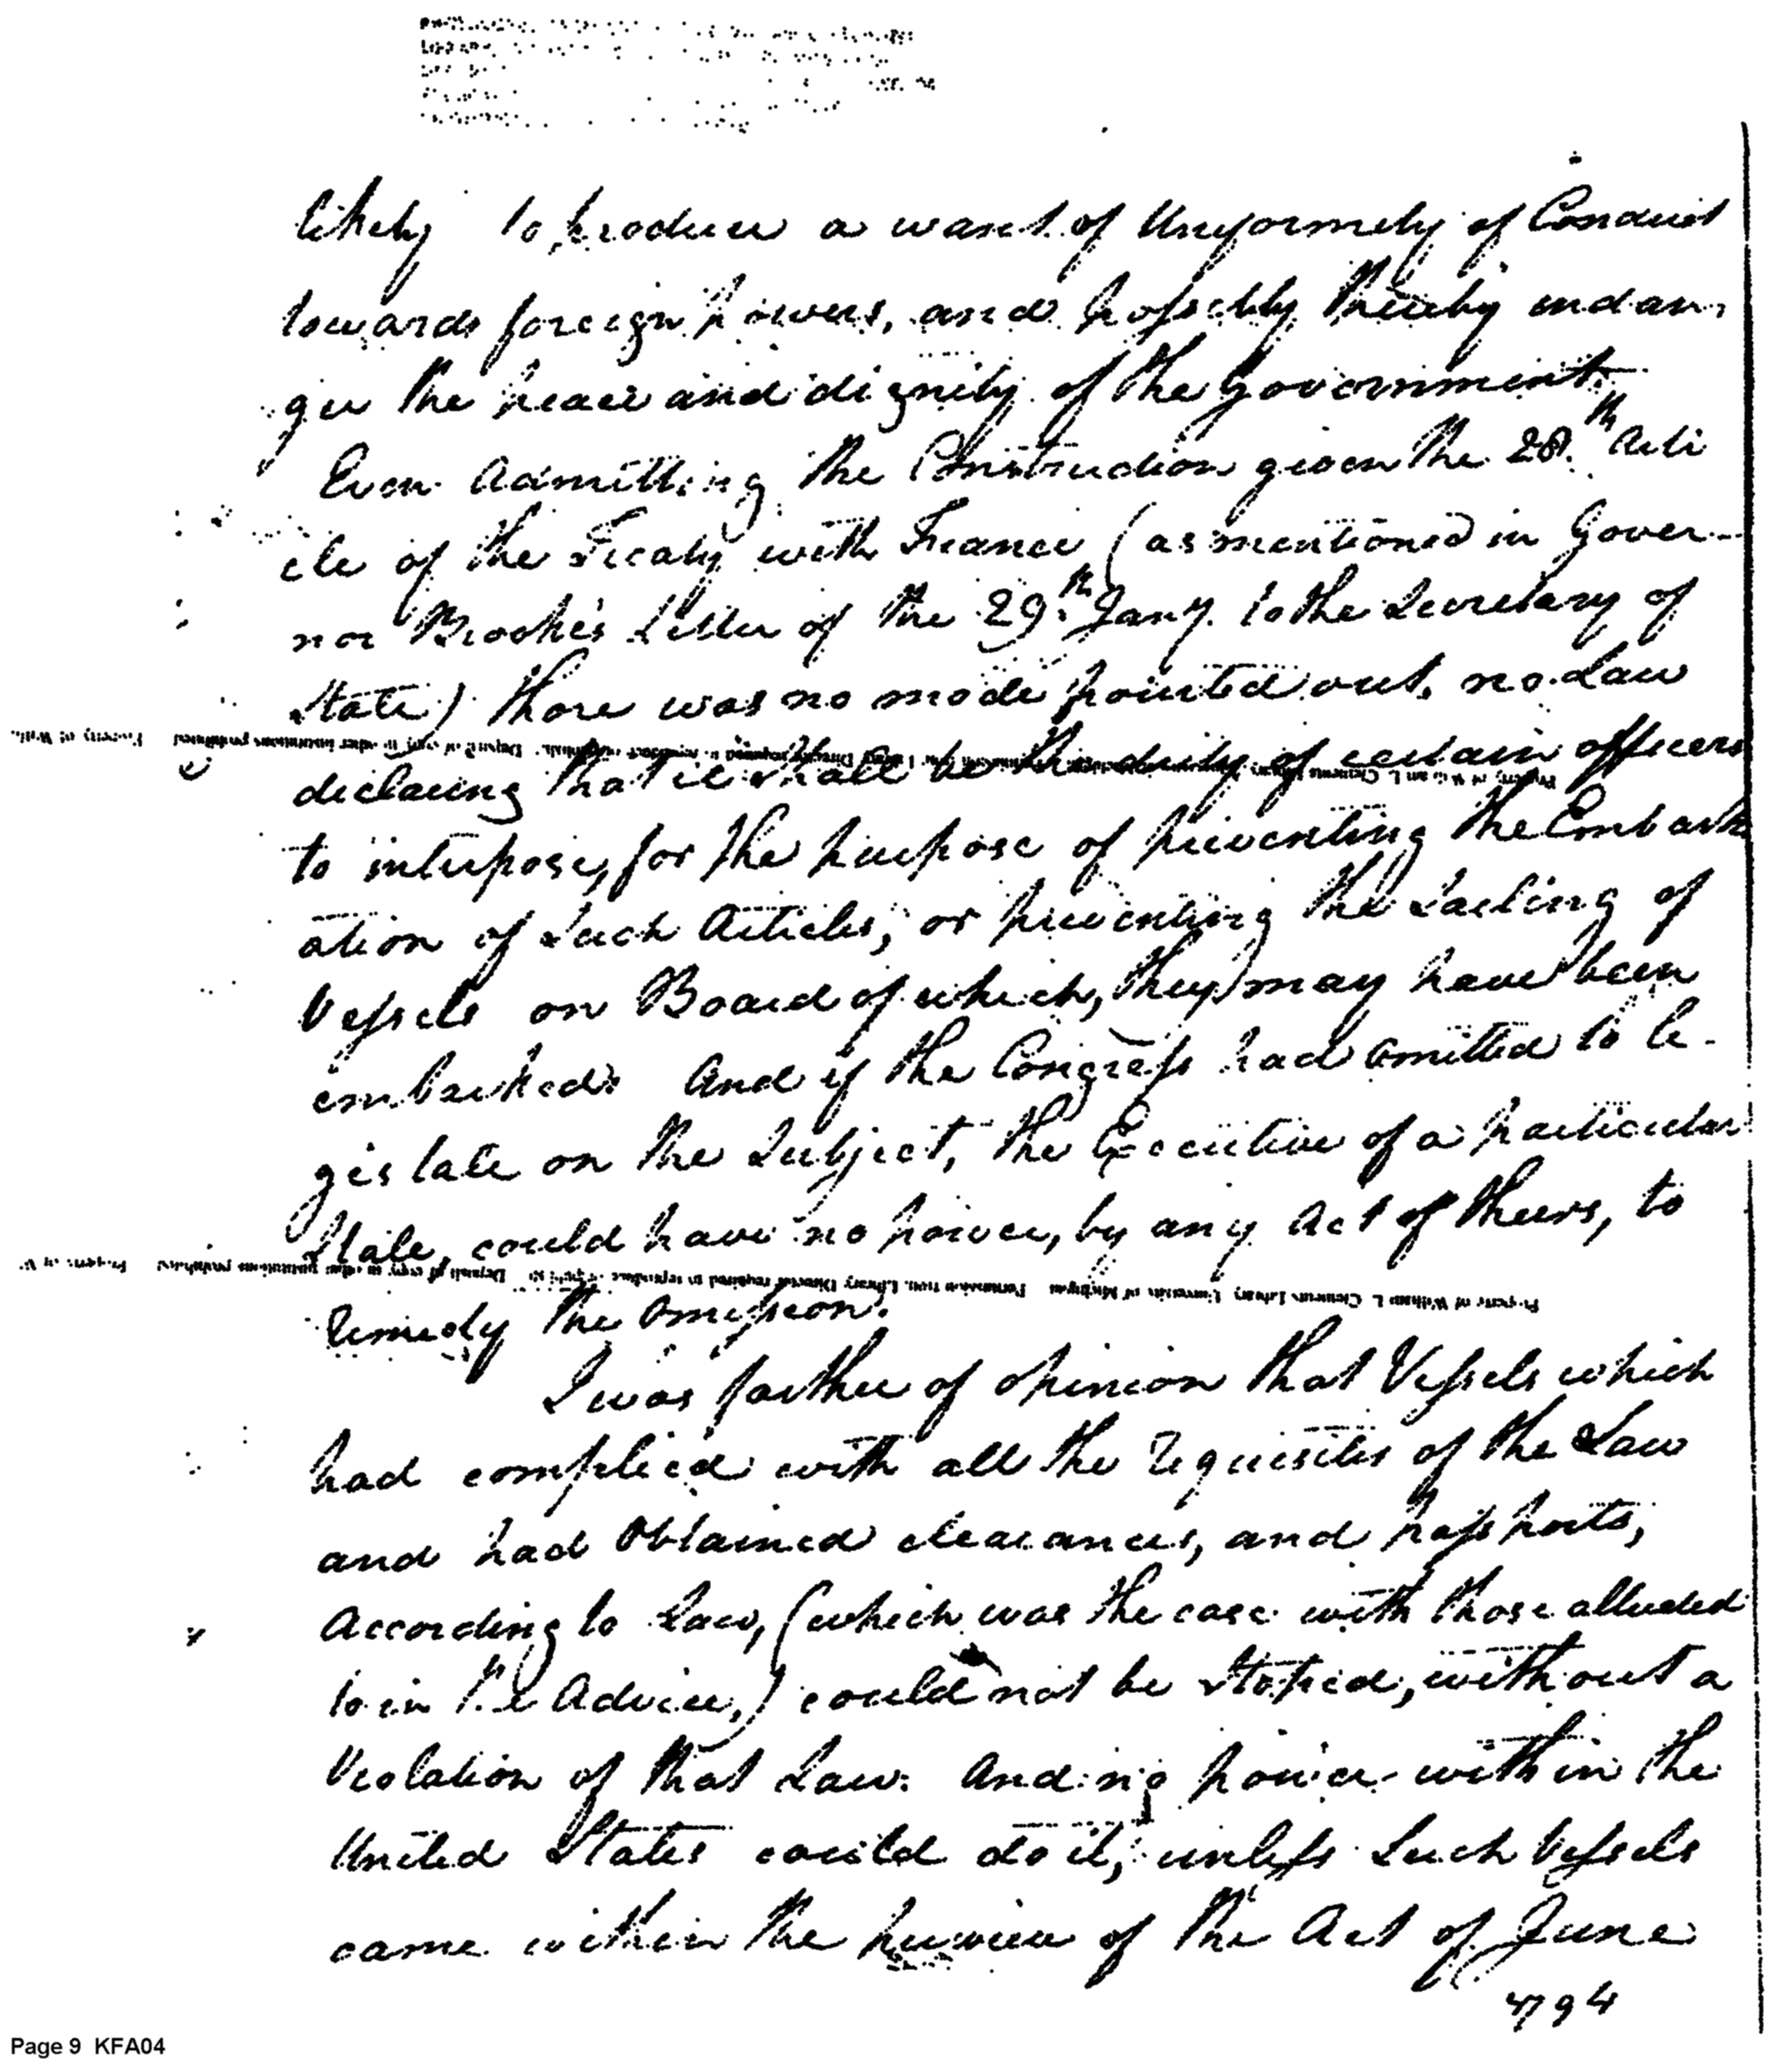 likely to produce a want of Uniformity of Conduct
towards foreign powers, and possibly thereby endan,
ger the peace and dignity of the Government.
Even Admitting the Construction given the 28.th Arti
cle of the Treaty with France (as mentioned in Gover-
nor Brooke's Letter of the 29.th Jany. to the Secretary of
State) there was no mode pointed out, no Law
declaring that it shall be the duty of certain officers
to interpose, for the purpose of preventing the Embark
ation of Such Articles, or preventing the Sailing of
Vessels on Board of which, they may have been
embarked. And if the Congress had omitted to le-
gislate on the Subject, the Executive of a particular
State, could have no power, by any Act of theirs, to
remedy the Omission.
I was farther of opinion that Vessels which
had complied with all the requisites of the Law
and had Obtained clearances, and passports,
According to Law, (which was the case with those alluded
to in the Advice,) could not be Stopied, without a
Violation of that Law. And no power within the
United States could do it, unless Such Vessels
came within the purview of the Act of June
1794
Property of William L. Clements Library, University of Michigan. Permission from Library Director required to reproduce or publish. Deposit of copy in other institutions prohibited. Property of W
Page 9 KFA04